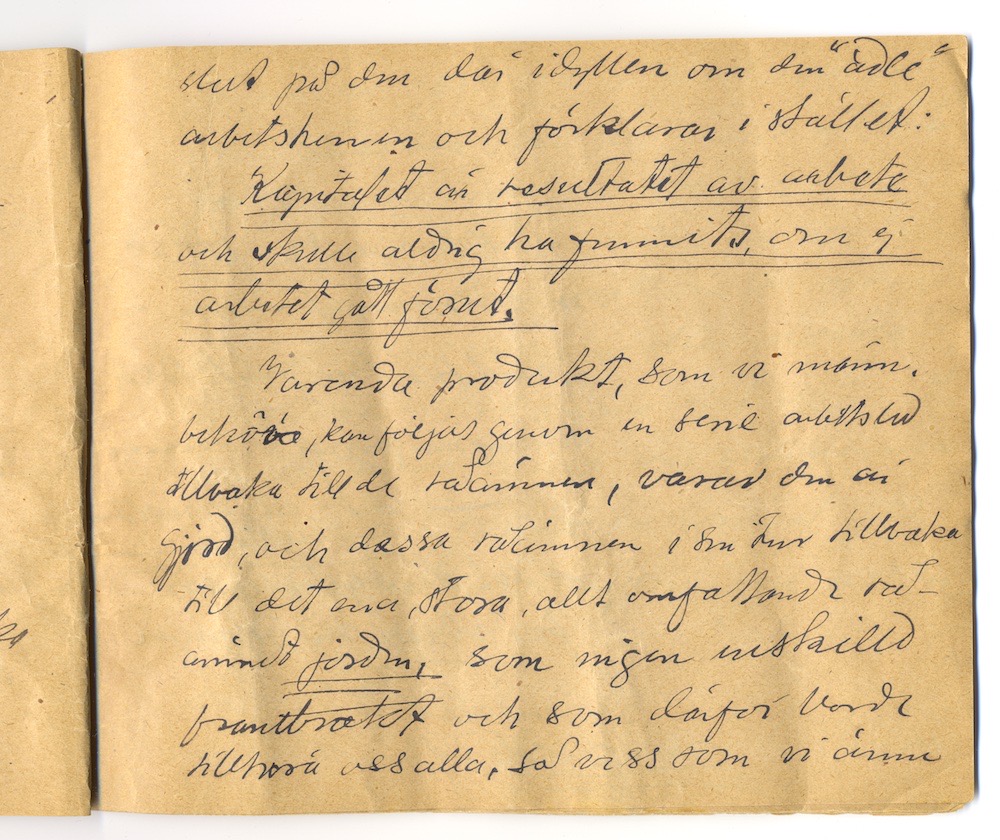 slut på den där idyllen om den "ädle"
arbetsherren och förklarar i stället:
Kapitalet är resultatet av arbete
och skulle aldrig ha funnits, om ej
arbetet gått förut.
Varenda produkt, som vi männ.
behöva, kan följas genom en serie arbetsled
tillbaka till de råämnen, varav den är
gjord, och dessa råämnen i sin tur tillbaka
till det ena, stora, allt omfattande rå-
ämnet jorden, som ingen enskilld
frambrakt och som därför borde
tillhöra oss alla, så visst som vi änne